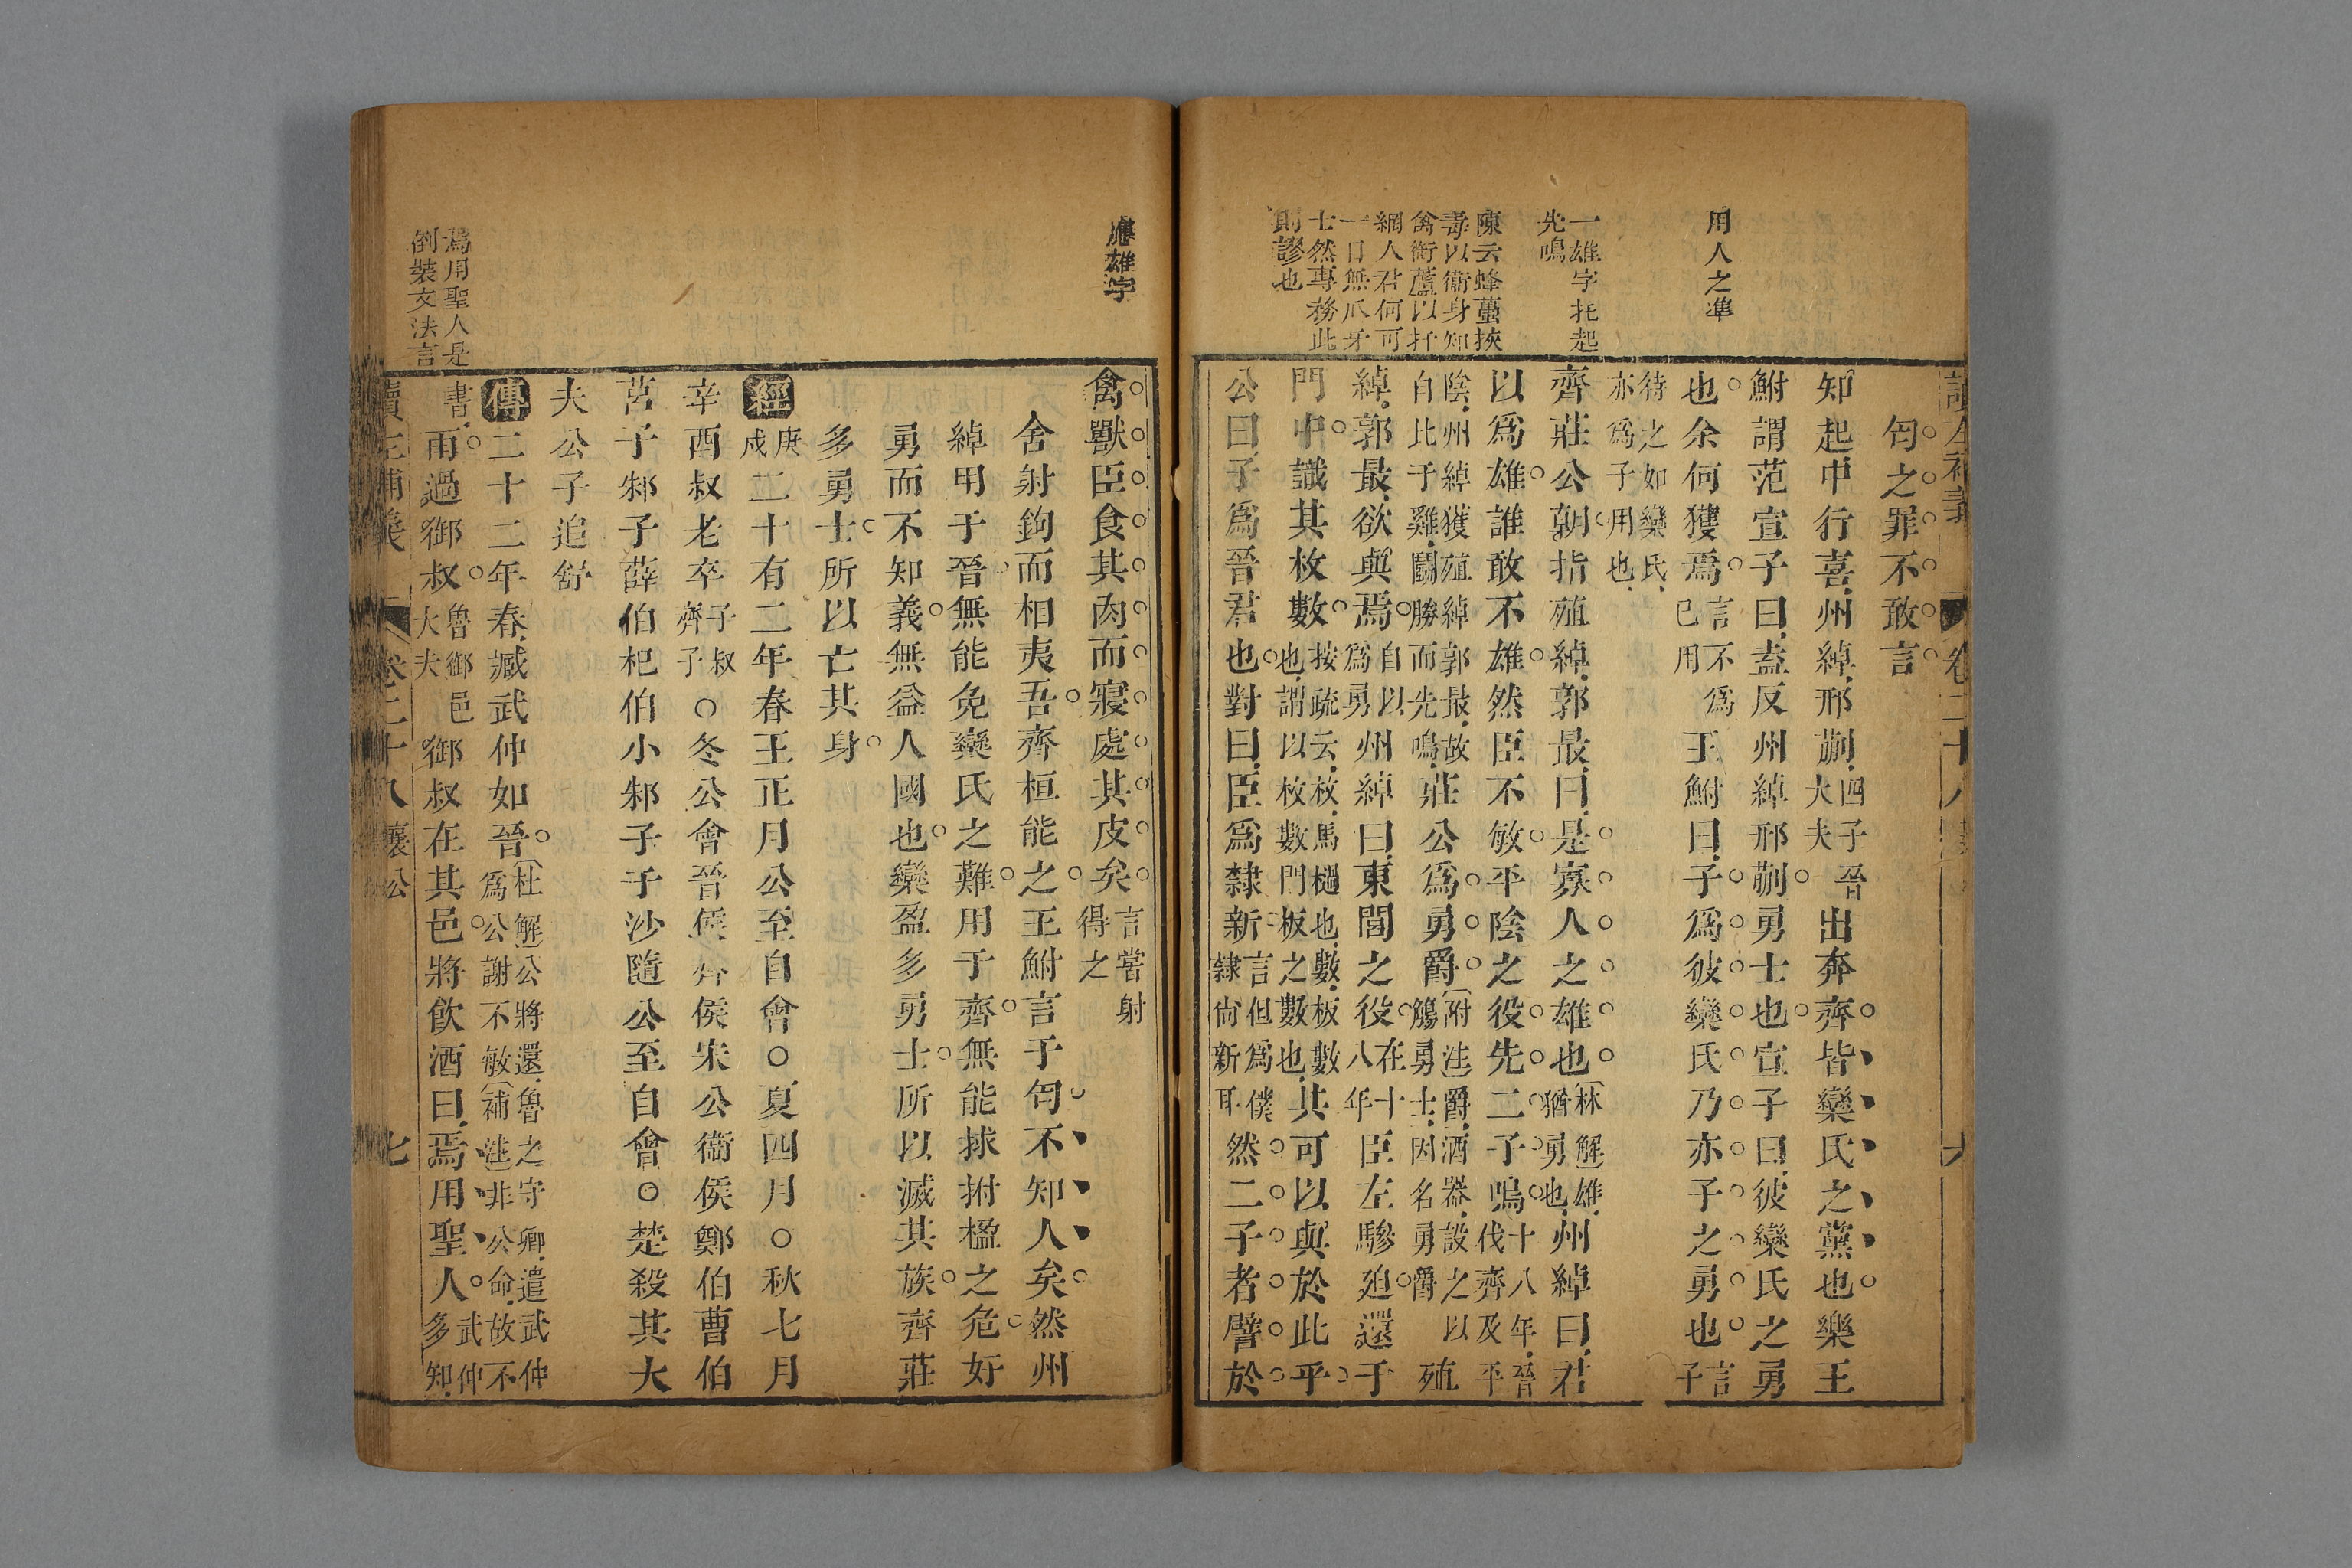 讀左補義 卷二十八 六
用人之準
一雄字托起
先鳴
陳云蜂蠆挾
毒以衞身知
禽銜蘆以扞
網人君何可
一日無爪牙
士然專務此
則謬也
匄之罪不敢言
知起中行喜州綽邢蒯四子晉大夫出奔齊皆欒氏之黨也樂王
鮒謂范宣子曰盍反州綽邢蒯勇士也宣子曰彼欒氏之勇
也余何獲焉言不爲己用王鮒曰子爲彼欒氏乃亦子之勇也言子
待之如欒氏亦爲子用也
齊莊公朝指殖綽郭最曰是寡人之雄也林解雄猶勇也州綽曰君
以爲雄誰敢不雄然臣不敏平陰之役先二子鳴十八年晉伐齊及平
陰州綽獲殖綽郭最故自比于雞鬭勝而先鳴莊公爲勇爵附註爵酒器設之以觴勇士因名勇爵殖
綽郭最欲與焉自以爲勇州綽曰東閭之役在十八年臣左驂迫還于
門中識其枚數按疏云枚馬檛也數板數也謂以枚數門板之數也其可以與於此乎
公曰子爲晉君也對曰臣爲隸新言但爲僕隸尙新耳然二子者譬於
應雄字
焉用聖人是
倒裝文法言
禽獸臣食其肉而寢處其皮矣言嘗射得之
舍射鉤而相夷吾齊桓能之王鮒言于匄不知人矣然州
綽用于晉無能免欒氏之難用于齊無能捄拊楹之危好
勇而不知義無益人國也欒盈多勇士所以滅其族齊莊
多勇士所以亡其身
經庚戌二十有二年春王正月公至自會○夏四月○秋七月
辛酉叔老卒子叔齊子○冬公會晉侯齊侯宋公衞侯鄭伯曹伯
莒子邾子薛伯杞伯小邾子于沙隨公至自會○楚殺其大
夫公子追舒
傳二十二年春臧武仲如晉杜解公將還魯之守卿遣武仲爲公謝不敏補註非公命故不
書雨過御叔魯御邑大夫御叔在其邑將飮酒曰焉用聖人武仲多知
讀左補義 卷二十八 襄公 七